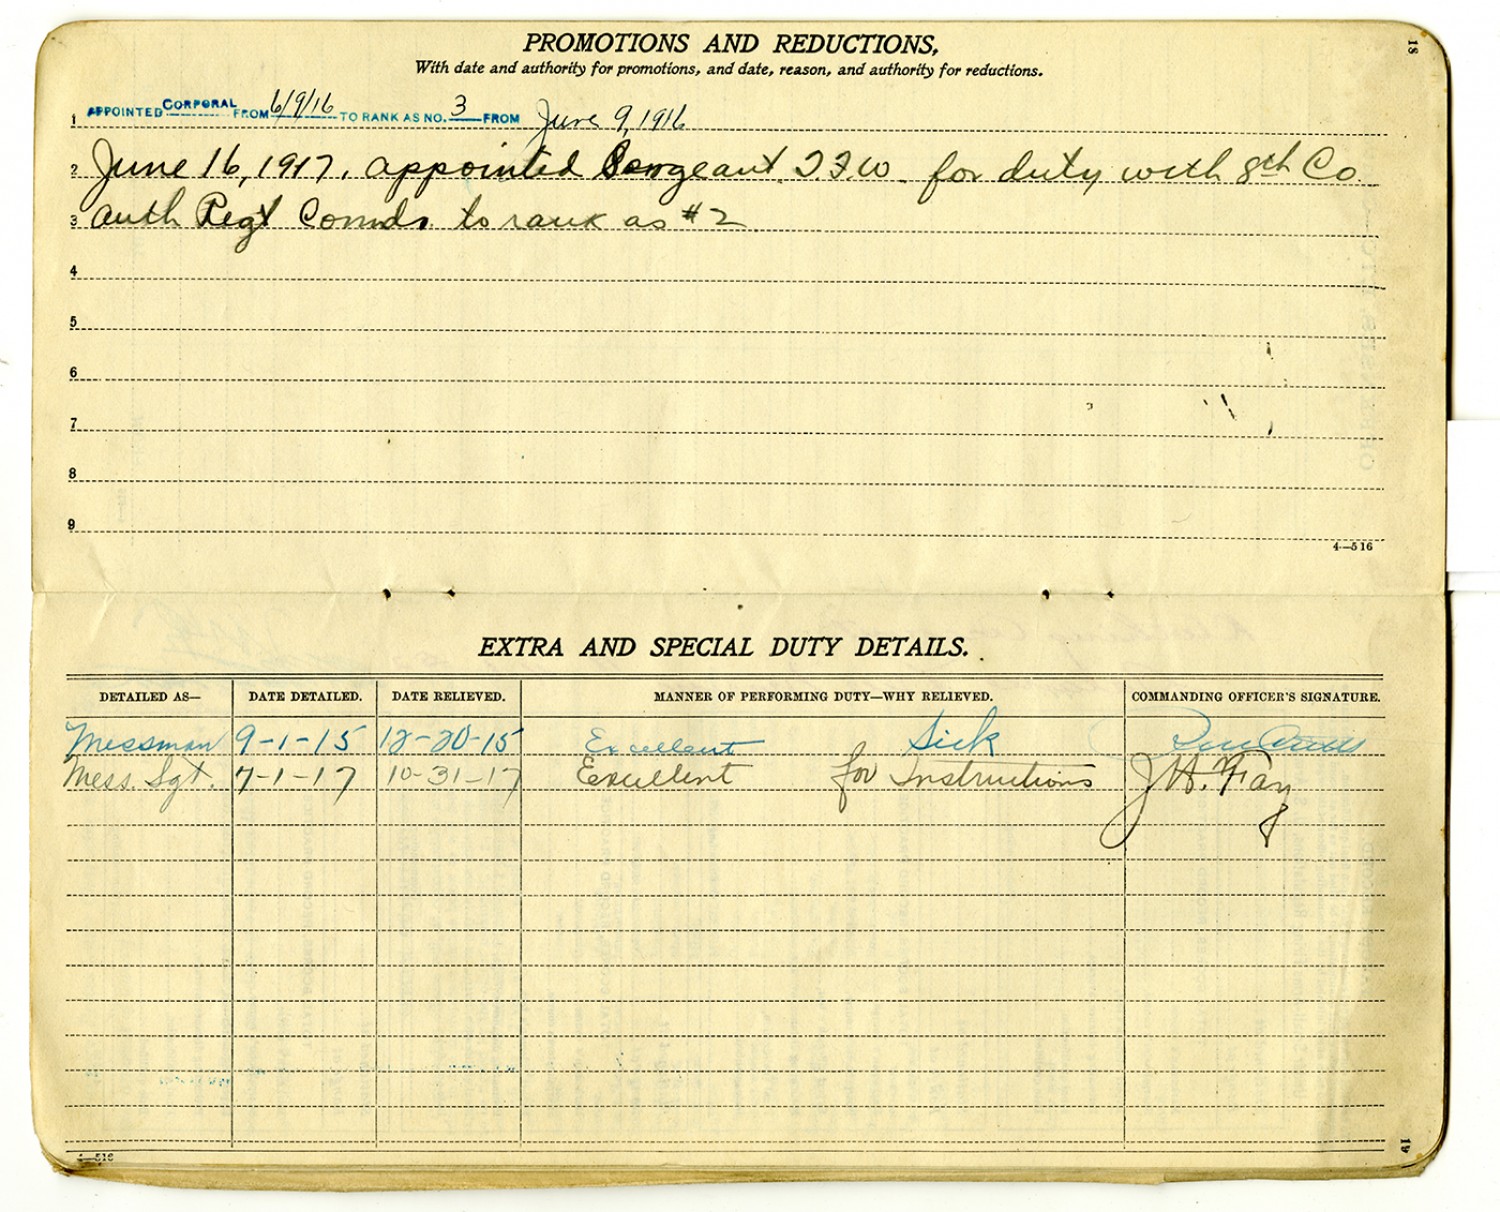 18
PROMOTIONS AND REDUCTIONS,
With date and authority for promotions, and date, reason, and authority for reductions.
1 APPOINTED CORPORAL FROM 6/9/16 TO RANK AS NO. 3 FROM June 9, 1916
2 June 16, 1917. appointed Sergeant for duty with 8th Co.
3 auth Regt Comdr. to rank as #2
4
5
6
7
8
9
4—516
EXTRA AND SPECIAL DUTY DETAILS.
DETAILED AS— DATE DETAILED. DATE RELIEVED. MANNER OF PERFORMING DUTY—WHY RELIEVED. COMMANDING OFFICER'S SIGNATURE.
Messman 9-1-15 12-20-15 Excellent Sick
Mess. Sgt. 7-1-17 10-31-17 Excellent for Instructions J.H. Fay
4—516
19